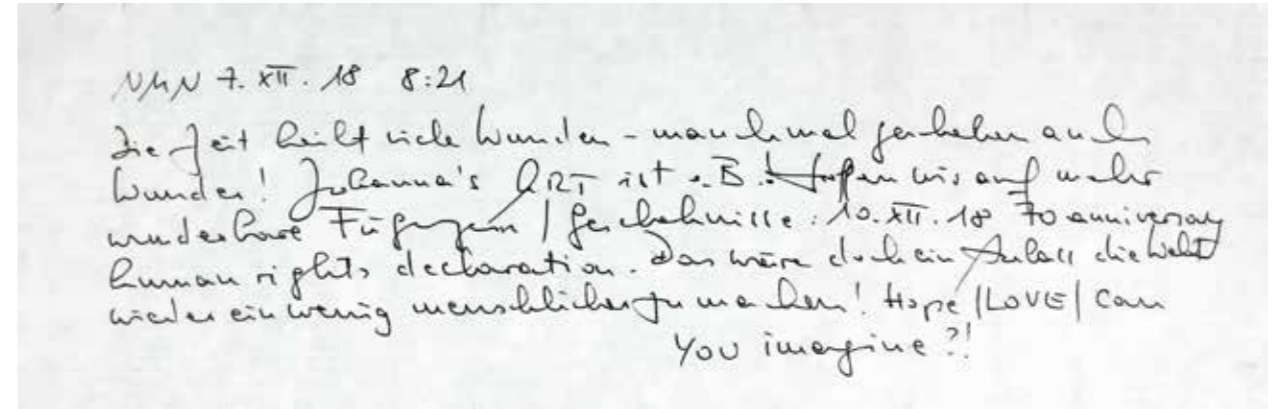 NMN 7. XII. 18 8:21
Die Zeit heilt viele Wunden - manchmal geschehen auch
Wunder! Johanna's ART ist z.B.! Hoffen wir auf mehr
wunderbare Fügungen / Geschehnisse: 10. XII. 18 70 anniversary
human rights declaration. Das wäre doch ein Anlass die Welt
wieder ein wenig menschlicher zu machen! Hope |LOVE| Can
You imagine?!